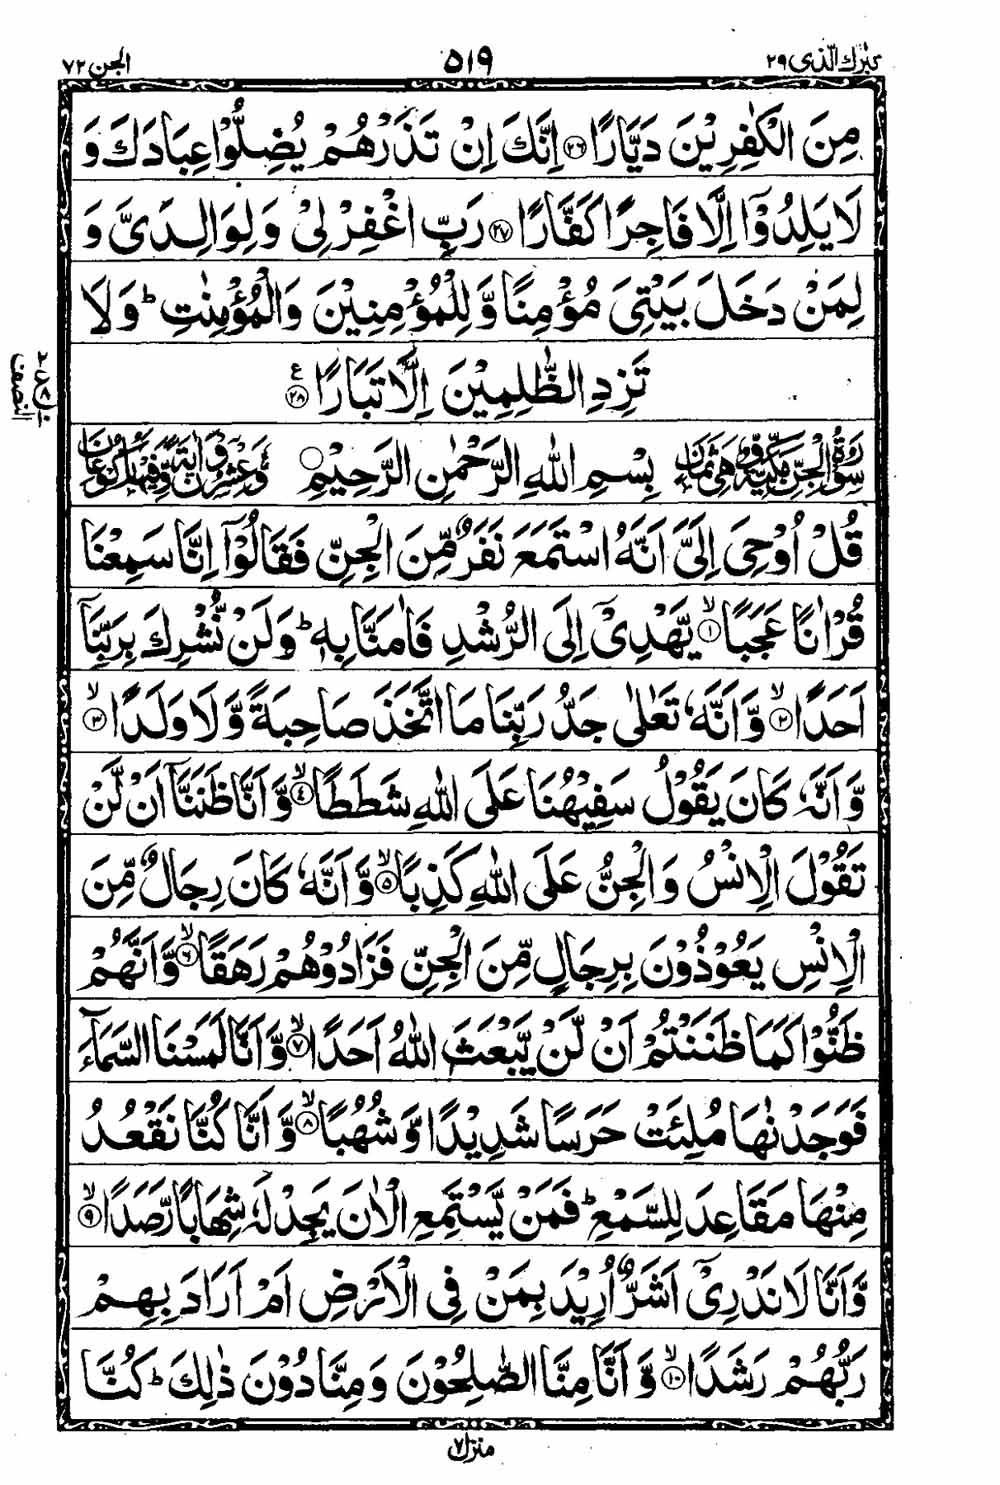 تبٰرك الّذی ۲۹ ۵۱۹ الجن ۷۲
مِنَ الْكٰفِرِيْنَ دَيَّارًا ﴿۲۶﴾ اِنَّكَ اِنْ تَذَرْهُمْ يُضِلُّوْا عِبَادَكَ وَ
لَا يَلِدُوْۤا اِلَّا فَاجِرًا كَفَّارًا ﴿۲۷﴾ رَبِّ اغْفِرْ لِیْ وَ لِوَالِدَیَّ وَ
لِمَنْ دَخَلَ بَيْتِیَ مُؤْمِنًا وَّ لِلْمُؤْمِنِيْنَ وَ الْمُؤْمِنٰتِ ؕ وَ لَا
تَزِدِ الظّٰلِمِيْنَ اِلَّا تَبَارًا ﴿۲۸﴾ ع
النصف
سُوْرَةُ الْجِنِّ مَكِّيَّةٌ وَّ هِیَ ثَمَانٌ بِسْمِ اللهِ الرَّحْمٰنِ الرَّحِيْمِ وَّ عِشْرُوْنَ اٰيَةً وَّ فِيْهَا رُكُوْعَانِ
قُلْ اُوْحِیَ اِلَیَّ اَنَّهُ اسْتَمَعَ نَفَرٌ مِّنَ الْجِنِّ فَقَالُوْۤا اِنَّا سَمِعْنَا
قُرْاٰنًا عَجَبًا ﴿۱﴾ۙ يَّهْدِیْۤ اِلَی الرُّشْدِ فَاٰمَنَّا بِهٖ ؕ وَ لَنْ نُّشْرِكَ بِرَبِّنَاۤ
اَحَدًا ﴿۲﴾ۙ وَّ اَنَّهٗ تَعٰلٰی جَدُّ رَبِّنَا مَا اتَّخَذَ صَاحِبَةً وَّ لَا وَلَدًا ﴿۳﴾ۙ
وَّ اَنَّهٗ كَانَ يَقُوْلُ سَفِيْهُنَا عَلَی اللهِ شَطَطًا ﴿۴﴾ۙ وَّ اَنَّا ظَنَنَّاۤ اَنْ لَّنْ
تَقُوْلَ الْاِنْسُ وَ الْجِنُّ عَلَی اللهِ كَذِبًا ﴿۵﴾ۙ وَّ اَنَّهٗ كَانَ رِجَالٌ مِّنَ
الْاِنْسِ يَعُوْذُوْنَ بِرِجَالٍ مِّنَ الْجِنِّ فَزَادُوْهُمْ رَهَقًا ﴿۶﴾ۙ وَّ اَنَّهُمْ
ظَنُّوْا كَمَا ظَنَنْتُمْ اَنْ لَّنْ يَّبْعَثَ اللهُ اَحَدًا ﴿۷﴾ۙ وَّ اَنَّا لَمَسْنَا السَّمَآءَ
فَوَجَدْنٰهَا مُلِئَتْ حَرَسًا شَدِيْدًا وَّ شُهُبًا ﴿۸﴾ۙ وَّ اَنَّا كُنَّا نَقْعُدُ
مِنْهَا مَقَاعِدَ لِلسَّمْعِ ؕ فَمَنْ يَّسْتَمِعِ الْاٰنَ يَجِدْ لَهٗ شِهَابًا رَّصَدًا ﴿۹﴾ۙ
وَّ اَنَّا لَا نَدْرِیْۤ اَشَرٌّ اُرِيْدَ بِمَنْ فِی الْاَرْضِ اَمْ اَرَادَ بِهِمْ
رَبُّهُمْ رَشَدًا ﴿۱۰﴾ۙ وَّ اَنَّا مِنَّا الصّٰلِحُوْنَ وَ مِنَّا دُوْنَ ذٰلِكَ ؕ كُنَّا
منزل ۷